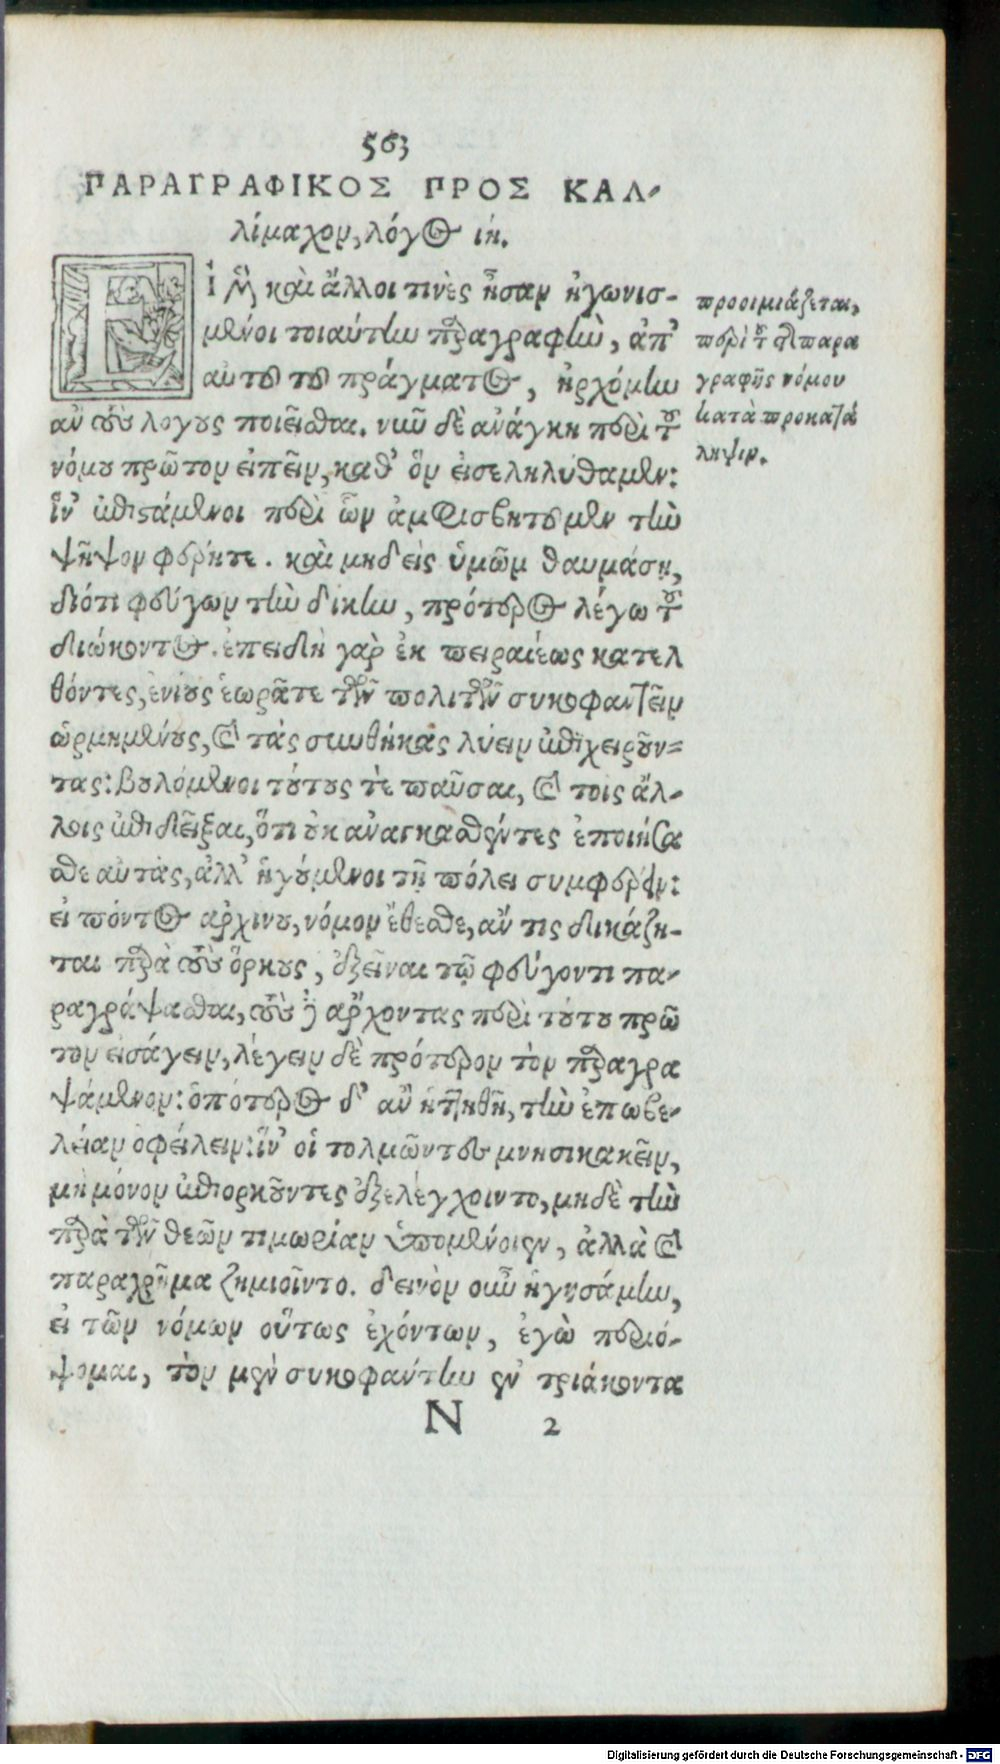 563
ΠΑΡΑΓΡΑΦΙΚΟΣ ΠΡΟΣ ΚΑΛ-
λίμαχον, λόγος ιη.
Εἰ μὲν καὶ ἄλλοι τινὲς ἦσαν ἠγωνισ-
μένοι τοιαύτην παραγραφὴν, ἀπ’
αὐτοῦ τοῦ πράγματος, ἠρχόμην
ἂν τοὺς λόγους ποιεῖσθαι. νυῦ δὲ ἀνάγκη περὶ τοῦ
νόμου πρῶτον εἰπεῖν, καθ’ ὃν εἰσεληλύθαμεν:
ἵν’ ἐπιστάμενοι περὶ ὧν ἀμφισβητοῦμεν τὴν
ψῆφον φέρητε. καὶ μηδεὶς ὑμῶν θαυμάσῃ,
διότι φεύγων τὴν δίκην, πρότερος λέγω τοῦ
διώκοντος. ἐπειδὴ γὰρ ἐκ πειραιέως κατελ
θόντες, ἐνίους ἑωρᾶτε τῶν πολιτῶν συκοφαντεῖν
ὡρμημένους, καὶ τὰς συνθήκας λύειν ἐπιχειροῦν=
τας: βουλόμενοι τούτους τὲ παῦσαι, καὶ τοῖς ἄλ-
λοις ἐπιδεῖξαι, ὅτι οὐκ ἀναγκασθέντες ἐποιήσα
σθε αὐτὰς, ἀλλ’ ἡγούμενοι τῇ πόλει συμφέρειν:
εἰπόντος ἀρχίνου, νόμον ἔθεσθε, ἄν τις δικάζη-
ται παρὰ τοὺς ὅρκους, ἐξεῖναι τῷ φεύγοντι πα-
ραγράψασθαι, τοὺς δ’ ἄρχοντας περὶ τούτου πρῶ
τον εἰσάγειν, λέγειν δὲ πρότερον τὸν παραγρα
ψάμενον: ὁπότερος δ’ ἂν ἡττηθῇ, τὴν ἐπωβε-
λείαν ὀφείλειν: ἵν’ οἱ τολμῶντες μνησικακεῖν,
μὴ μόνον ἐπιορκοῦντες ἐξελέγχοιντο, μηδὲ τὴν
παρὰ τῶν θεῶν τιμωρίαν ὑπομένοιεν, ἀλλὰ καὶ
παραχρῆμα ζημιοῖντο. δεινὸν οὖν ἡγησάμην,
εἰ τῶν νόμων οὕτως ἐχόντων, ἐγὼ περιό-
ψομαι, τὸν μὲν συκοφάντην ἐν τριάκοντα
N 2
προοιμιάζεται,
περὶ τοῦ τῆς παρα
γραφῆς νόμου
κατὰ προκατά
ληψιν.
Digitalisierung gefördert durch die Deutsche Forschungsgemeinschaft - DFG